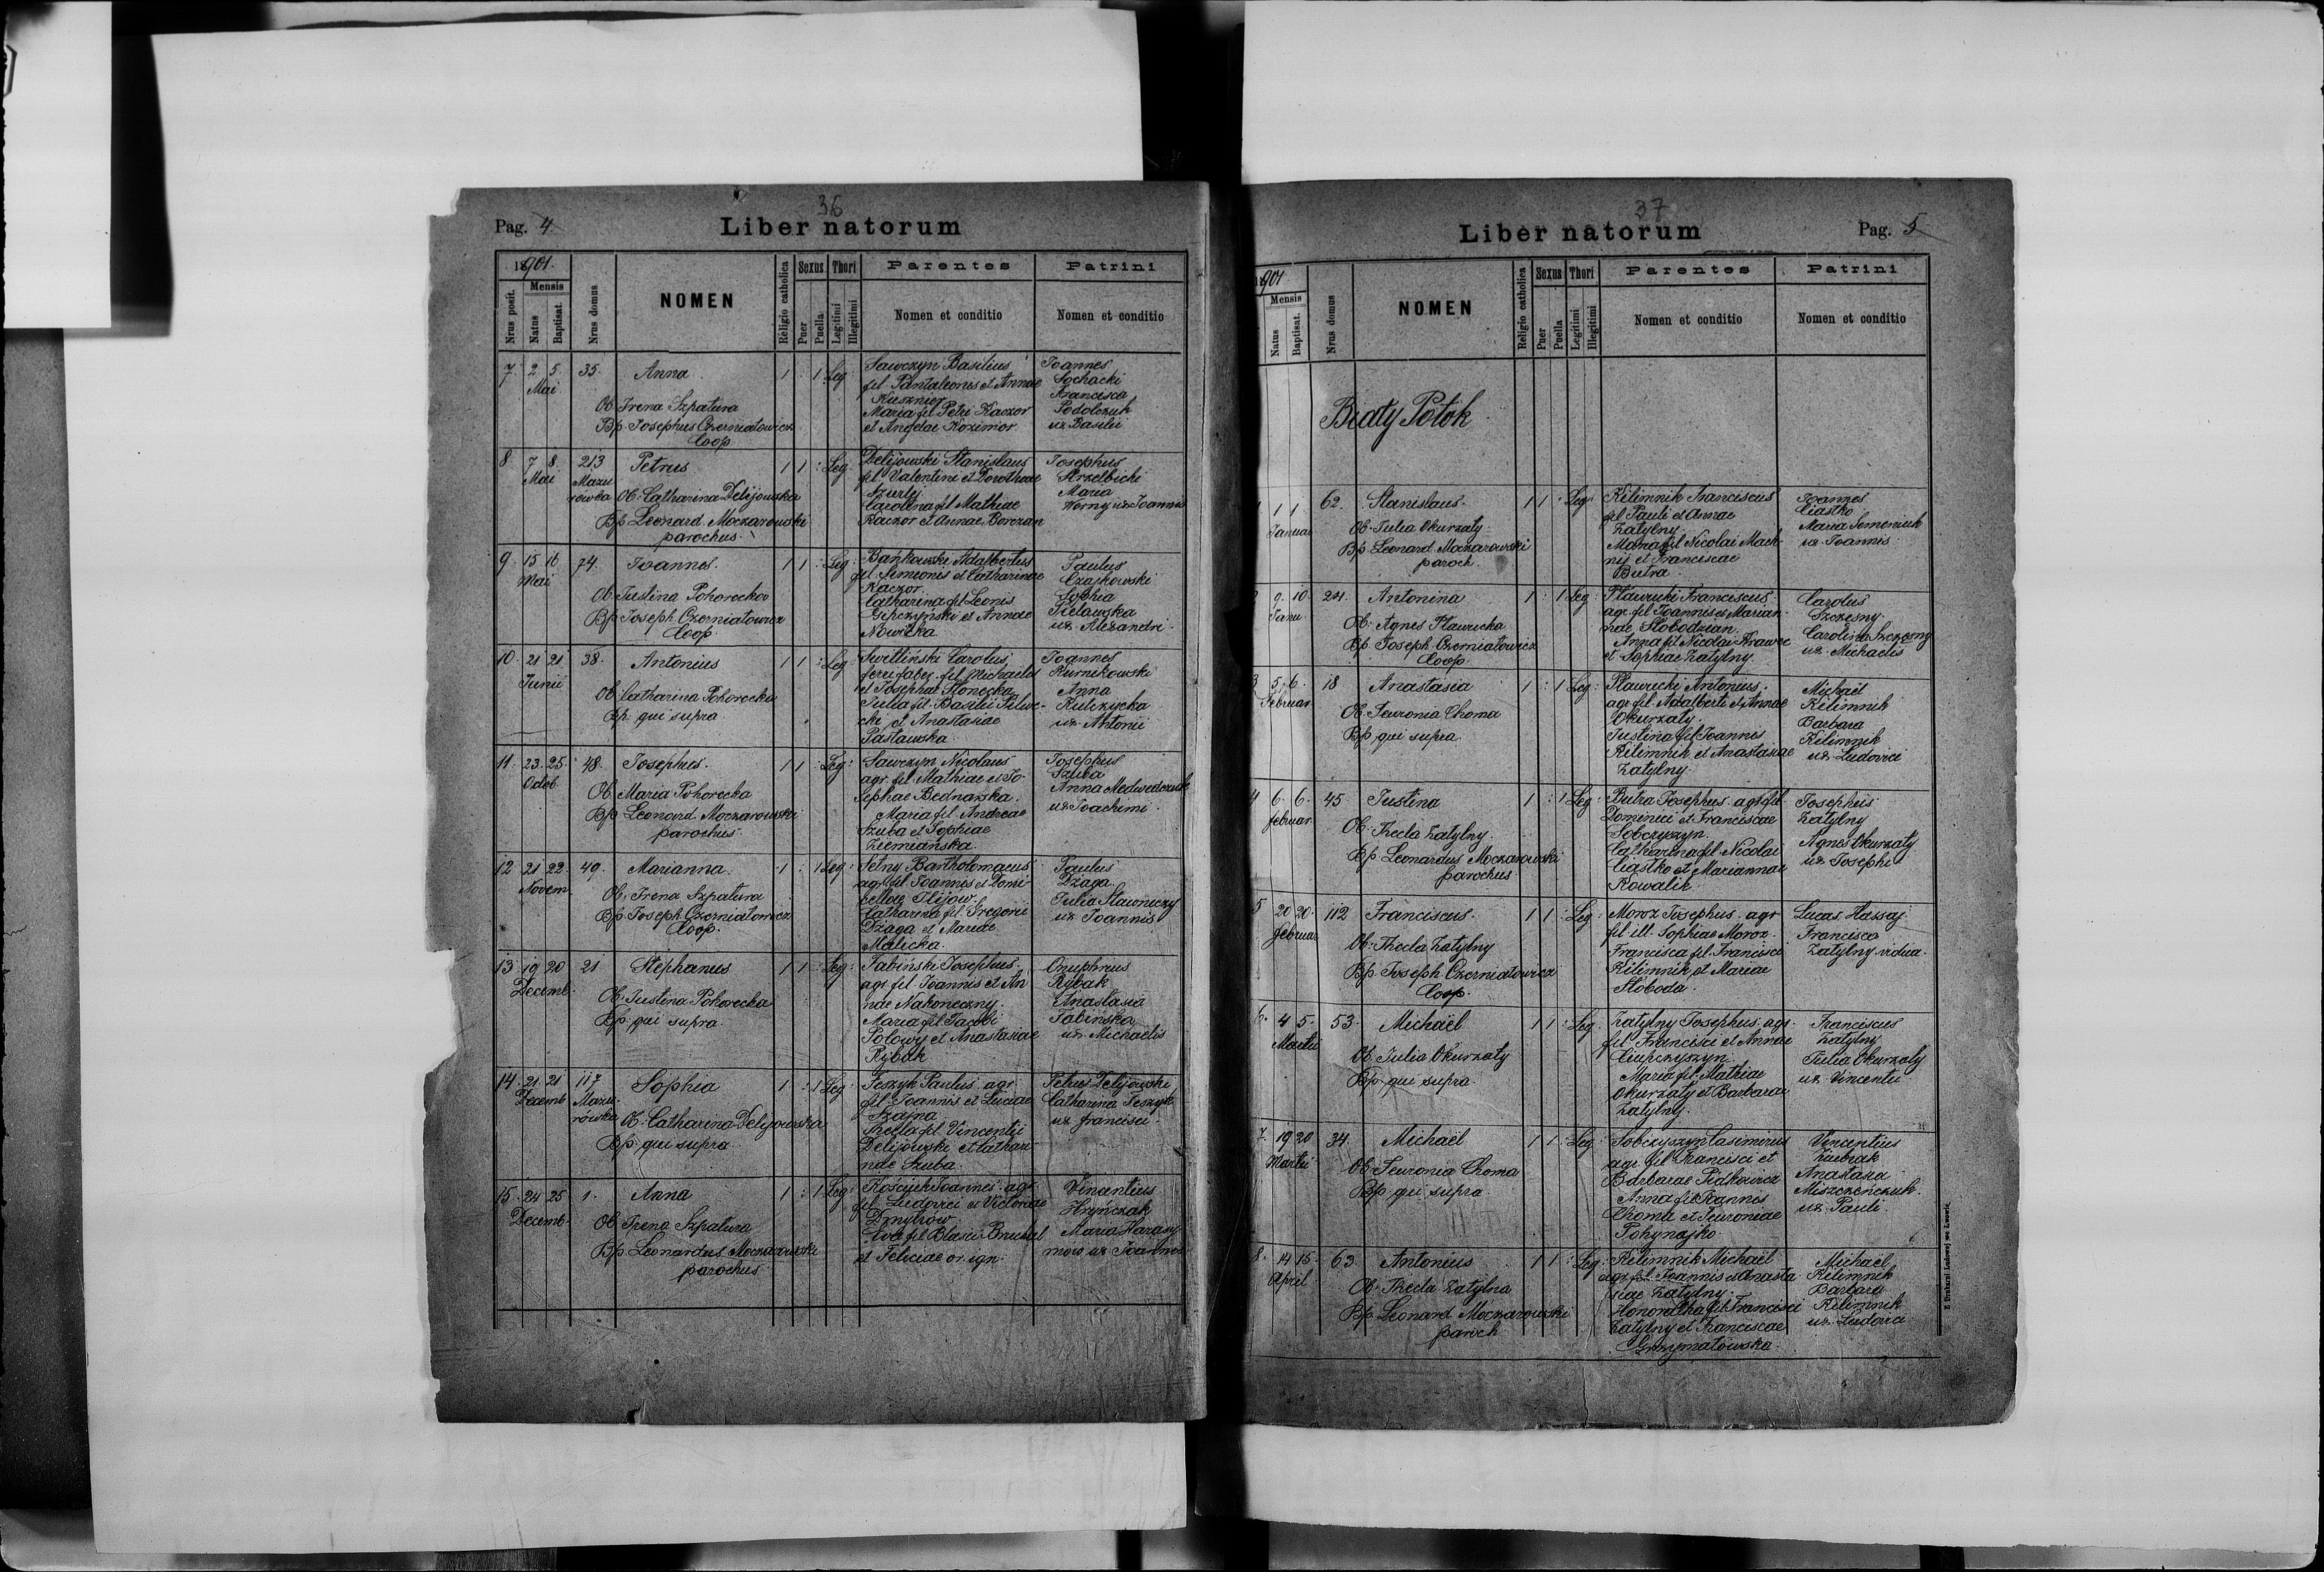 36
Pag. 4
Liber natorum
1901.
Nrus posit.
Mensis
Natus
Baptisat.
Nrus domus
NOMEN
Religio catholica
Sexus
Puer
Puella
Thori
Legitimi
Illegitimi
Parentes
Nomen et conditio
Patrini
Nomen et conditio
7. 2. 5. Mai
35.
Anna
Ob. Irena Szpatura
Bp. Josephus Czerniatowicz
Coop
1 : 1 Leg.
Sawczyn Basilius
fil Pantaleonis et Annae
Kusznier
Maria fil Petri Kaczor
et Angelae Kozimor
Joannes
Sochacki
Francisca
Podolczuk
ux Basilii
8 7. 8. Mai
213
Mazu
rówka
Petrus
Ob. Catharina Delijowska
Bp Leonard Moczarowski
parochus.
1 1 : Leg.
Delijowski Stanislaus
fil Valentini et Dorotheae
Szurley
Carolina fil Mathiae
Kaczor et Annae Borczan
Josephus
Strzelbicki
Maria
Worny ux Joannis
9. 15 16 Mai
74.
Joannes.
Ob. Justina Pohorecka
Bp Joseph Czerniatowicz
Coop
1 1 : Leg.
Bańkowski Adalbertus
fil Semeonis et Catharinae
Kaczor.
Catharina fil Leonis
Gipczyński et Annae
Nowicka
Paulus
Czajkowski
Sophia
Sielawska
ux. Alexandri.
10. 21 21 Junii
38.
Antonius
Ob. Catharina Pohorecka
Bp. qui supra
1 1 : Leg
Switliński Carolus
fil Michaelis
et Josephae Słonecka
Julia fil. Basilii
cki et Anastasiae
Pasławska
Joannes
Kurnikowski
Anna
Kulczycka
ux. Antonii
11. 23. 25 Octob.
48.
Josephus.
Ob. Maria Pohorecka
Bp Leonard Moczarowski
parochus
1 1 : Leg:
Sawczyn Nicolaus
agr fil Mathiae et Jo-
sephae Bednarska.
Maria fil Andreae
Szuba et Sophiae
Ziemiańska.
Josephus
Szuba
Anna Medwedczuk
ux Joachimi.
12 21 22 Novem.
49.
Marianna.
Ob. Irena Szpatura
Bp Joseph Czerniatowicz
Coop.
1 : 1 Leg:
Setny Bartholomaeus
agr fil Joannis et Domi
cellae Ilijow.
Catharina fil Gregorii
Dzaga et Mariae
Malicka.
Paulus
Dzaga
Julia Stawniczy
ux Joannis
13. 19 20 Decemb.
21
Stephanus
Ob. Justina Pohorecka
Bp. qui supra.
1 1 : Leg:
Fabiński Josephus.
agr fil Joannis et An
nae Nakoneczny.
Maria fil Jacobi
Sołowy et Anastasiae
Rybak
Onuphrius
Rybak
Anastasia
Fabińska
ux. Michaelis
14. 21. 21 Decemb
117
Mazu
rówka
Sophia
Ob. Catharina Delijowska
Bp. qui supra
1 : 1 Leg.
Teszyk Paulus agr
fil Joannis et Luciae
Szajna
Thecla fil Vincentii
Delijowski et Cathari
nae Szuba
Petrus Delijowski
Catharina Teszyk
ux. Francisci
15. 24 25 Decemb.
1.
Anna
Ob. Irena Szpatura
Bp. Leonardus Moczarowski
parochus
1 : 1 Leg:
Kościuk Joannes agr
fil Ludovici et Victoriae
Dmytrów
Eva fil Blasii
et Feliciae or. ign.
Vincentius
Hryńczak
Maria Harasy
mow ux Joannis
37
Liber natorum
Pag. 5
1901
Mensis
Natus
Baptisat.
Nrus domus
NOMEN
Religio catholica
Sexus
Puer
Puella
Thori
Legitimi
Illegitimi
Parentes
Nomen et conditio
Patrini
Nomen et conditio
Biały Potok
1 1 1 Januar
62.
Stanislaus.
Ob. Julia Okurzaty
Bp. Leonard Moczarowski
paroch.
1 1 : Leg.
Kilimnik Franciscus
fil Pauli et Annae
Zatylny.
Maria fil Nicolai Mach
nij et Franciscae
Butra.
Joannes
Ciastko
Maria Semeniuk
ux. Joannis.
9. 10. Janu.
24.
Antonina
Ob. Agnes Pławucka
Bp. Joseph Czerniatowicz
Coop.
1 : 1 Leg.
Pławucki Franciscus
agr. fil Joannis et Marian
nae Słobodzian.
Anna fil Nicolai Krawec
et Sophiae Zatylny.
Carolus
Szczesny
Carolina Szczesny
ux. Michaelis
3 5. 6. Februar.
18
Anastasia
Ob. Feuronia Choma
Bp. qui supra.
1 : 1 Leg:
Pławucki Antonius.
agr fil Adalberti et Annae
Okurzaty.
Justina fil Joannis
Kilimnik et Anastasiae
Zatylny.
Michaël
Kilimnik
Barbara
Kilimnik
ux. Ludovici
4 6. 6. februar.
45
Justina
Ob. Thecla Zatylny.
Bp. Leonardus Moczarowski
parochus
1 : 1 Leg:
Butra Josephus agr fil
Dominici et Franciscae
Sobczyszyn.
Catharina fil Nicolai
Ciastko et Mariannae
Kowalik.
Josephus
Zatylny
Agnes Okurzaty
ux. Josephi
5 20 20. februar
112
Franciscus.
Ob. Thecla Zatylny
Bp. Joseph Czerniatowicz
Coop.
1 1 : Leg:
Moroz Josephus agr
fil ill. Sophiae Moroz.
Francisca fil Francisci
Kilimnik et Mariae
Słoboda.
Lucas Hassaj.
Francisca
Zatylny vidua.
6. 4 5. Martii
53.
Michaël
Ob. Julia Okurzaty
Bp. qui supra.
1 1 : Leg.
Zatylny Josephus agr.
fil Francisci et Annae
Ciupczyszyn.
Maria fil Mathiae
Okurzaty et Barbarae
Zatylny.
Franciscus
Zatylny
Julia Okurzaty
ux. Vincentii
7. 19 20 Martii
34.
Michaël
Ob. Feuronia Choma
Bp. qui supra
1 1 : Leg:
Sobczyszyn Casimirus
agr. fil Francisci et
Barbarae Pidkowicz
Anna fil Joannis
Choma et Feuroniae
Pohynajko
Vincentius
Ziubrak
Anastasia
Miszczeńczuk.
ux. Pauli.
8. 14 15. April
63.
Antonius
Ob. Thecla Zatylna
Bp. Leonard Moczarowski
paroch.
1 1 : Leg:
Kilimnik Michaël
agr. fil. Joannis et Anasta
siae Zatylny.
Honoratha fil. Francisci
Zatylny et Franciscae
Grzymałowska.
Michaël
Kilimnik
Barbara
Kilimnik
ux. Ludovici
Z Drukarni Ludowej we Lwowie.